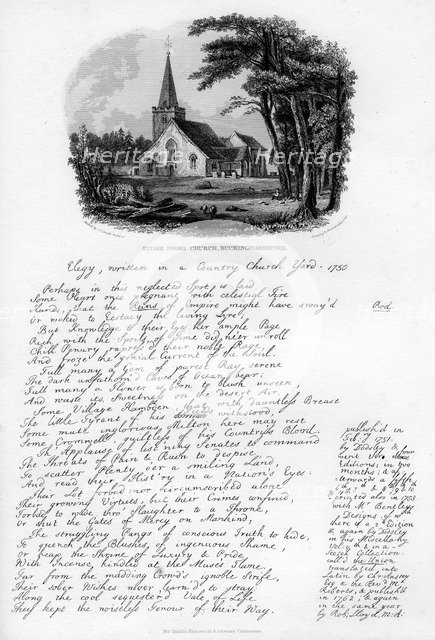 Heritage
Heritage
STOKE POGES CHURCH, BUCKINGHAMSHIRE.
Elegy, written in a Country Church Yard. 1750
Perhaps in this neglected Spot is laid
Some Heart once pregnant with celestial Fire
Hands, that the Reins of Empire might have sway'd
Rod
Or waked to Ecstacy the living Lyre,
But Knowledge to their Eyes her ample Page
Rich with the Spoils of Time did ne'er unroll
Chill Penury repress'd their noble Rage,
And froze the genial Current of the Soul.
Full many a Gem of purest Ray serene
The dark unfathom'd Caves of Ocean bear;
Full many a Flower is born to blush unseen,
And waste its Sweetness on the desert Air.
Some Village Hampden with dauntless Breast
The little Tyrant of his withstood,
Some mute inglorious Milton here may rest
Some Cromwell guiltless of his Country's Blood.
Th' Applause of list'ning Senates to command
The Threats of Pain & Ruin to despise,
To scatter Plenty o'er a smiling Land,
And read their Hist'ry in a Nation's Eyes:
Their Lot forbad: nor circumscribed alone
Their growing Virtues, but their Crimes confined,
Forbad to wade thro' Slaughter to a Throne,
Or shut the Gates of Mercy on Mankind,
The struggling Pangs of conscious Truth to hide,
To quench the Blushes of ingenuous Shame,
Or heap the Shrine of Luxury & Pride
With Incense, kindled at the Muse's Flame.
Far from the madding Crowd's ignoble Strife,
Their sober Wishes never learn'd to stray:
Along the cool sequester'd Vale of Life
They kept the noiseless Tenour of their Way.
publish'd in
Feb: 1751.
by Dodsley & four
Editions; in two
months; &
afterwards a fifth
printed also in 1753
with Mr Bentley's
Designs, of wch
there is a 2d Edition
& again by Dodsley
in his Miscellany,
Vol: 4 & in a
Scotch Collection
call'd the Union.
translated into
Latin by Chr: Anstey
Esq & the Revd Mr
Roberts, & publish'd
in 1762; & again
in the same year
by Rob: Lloyd, M:A: